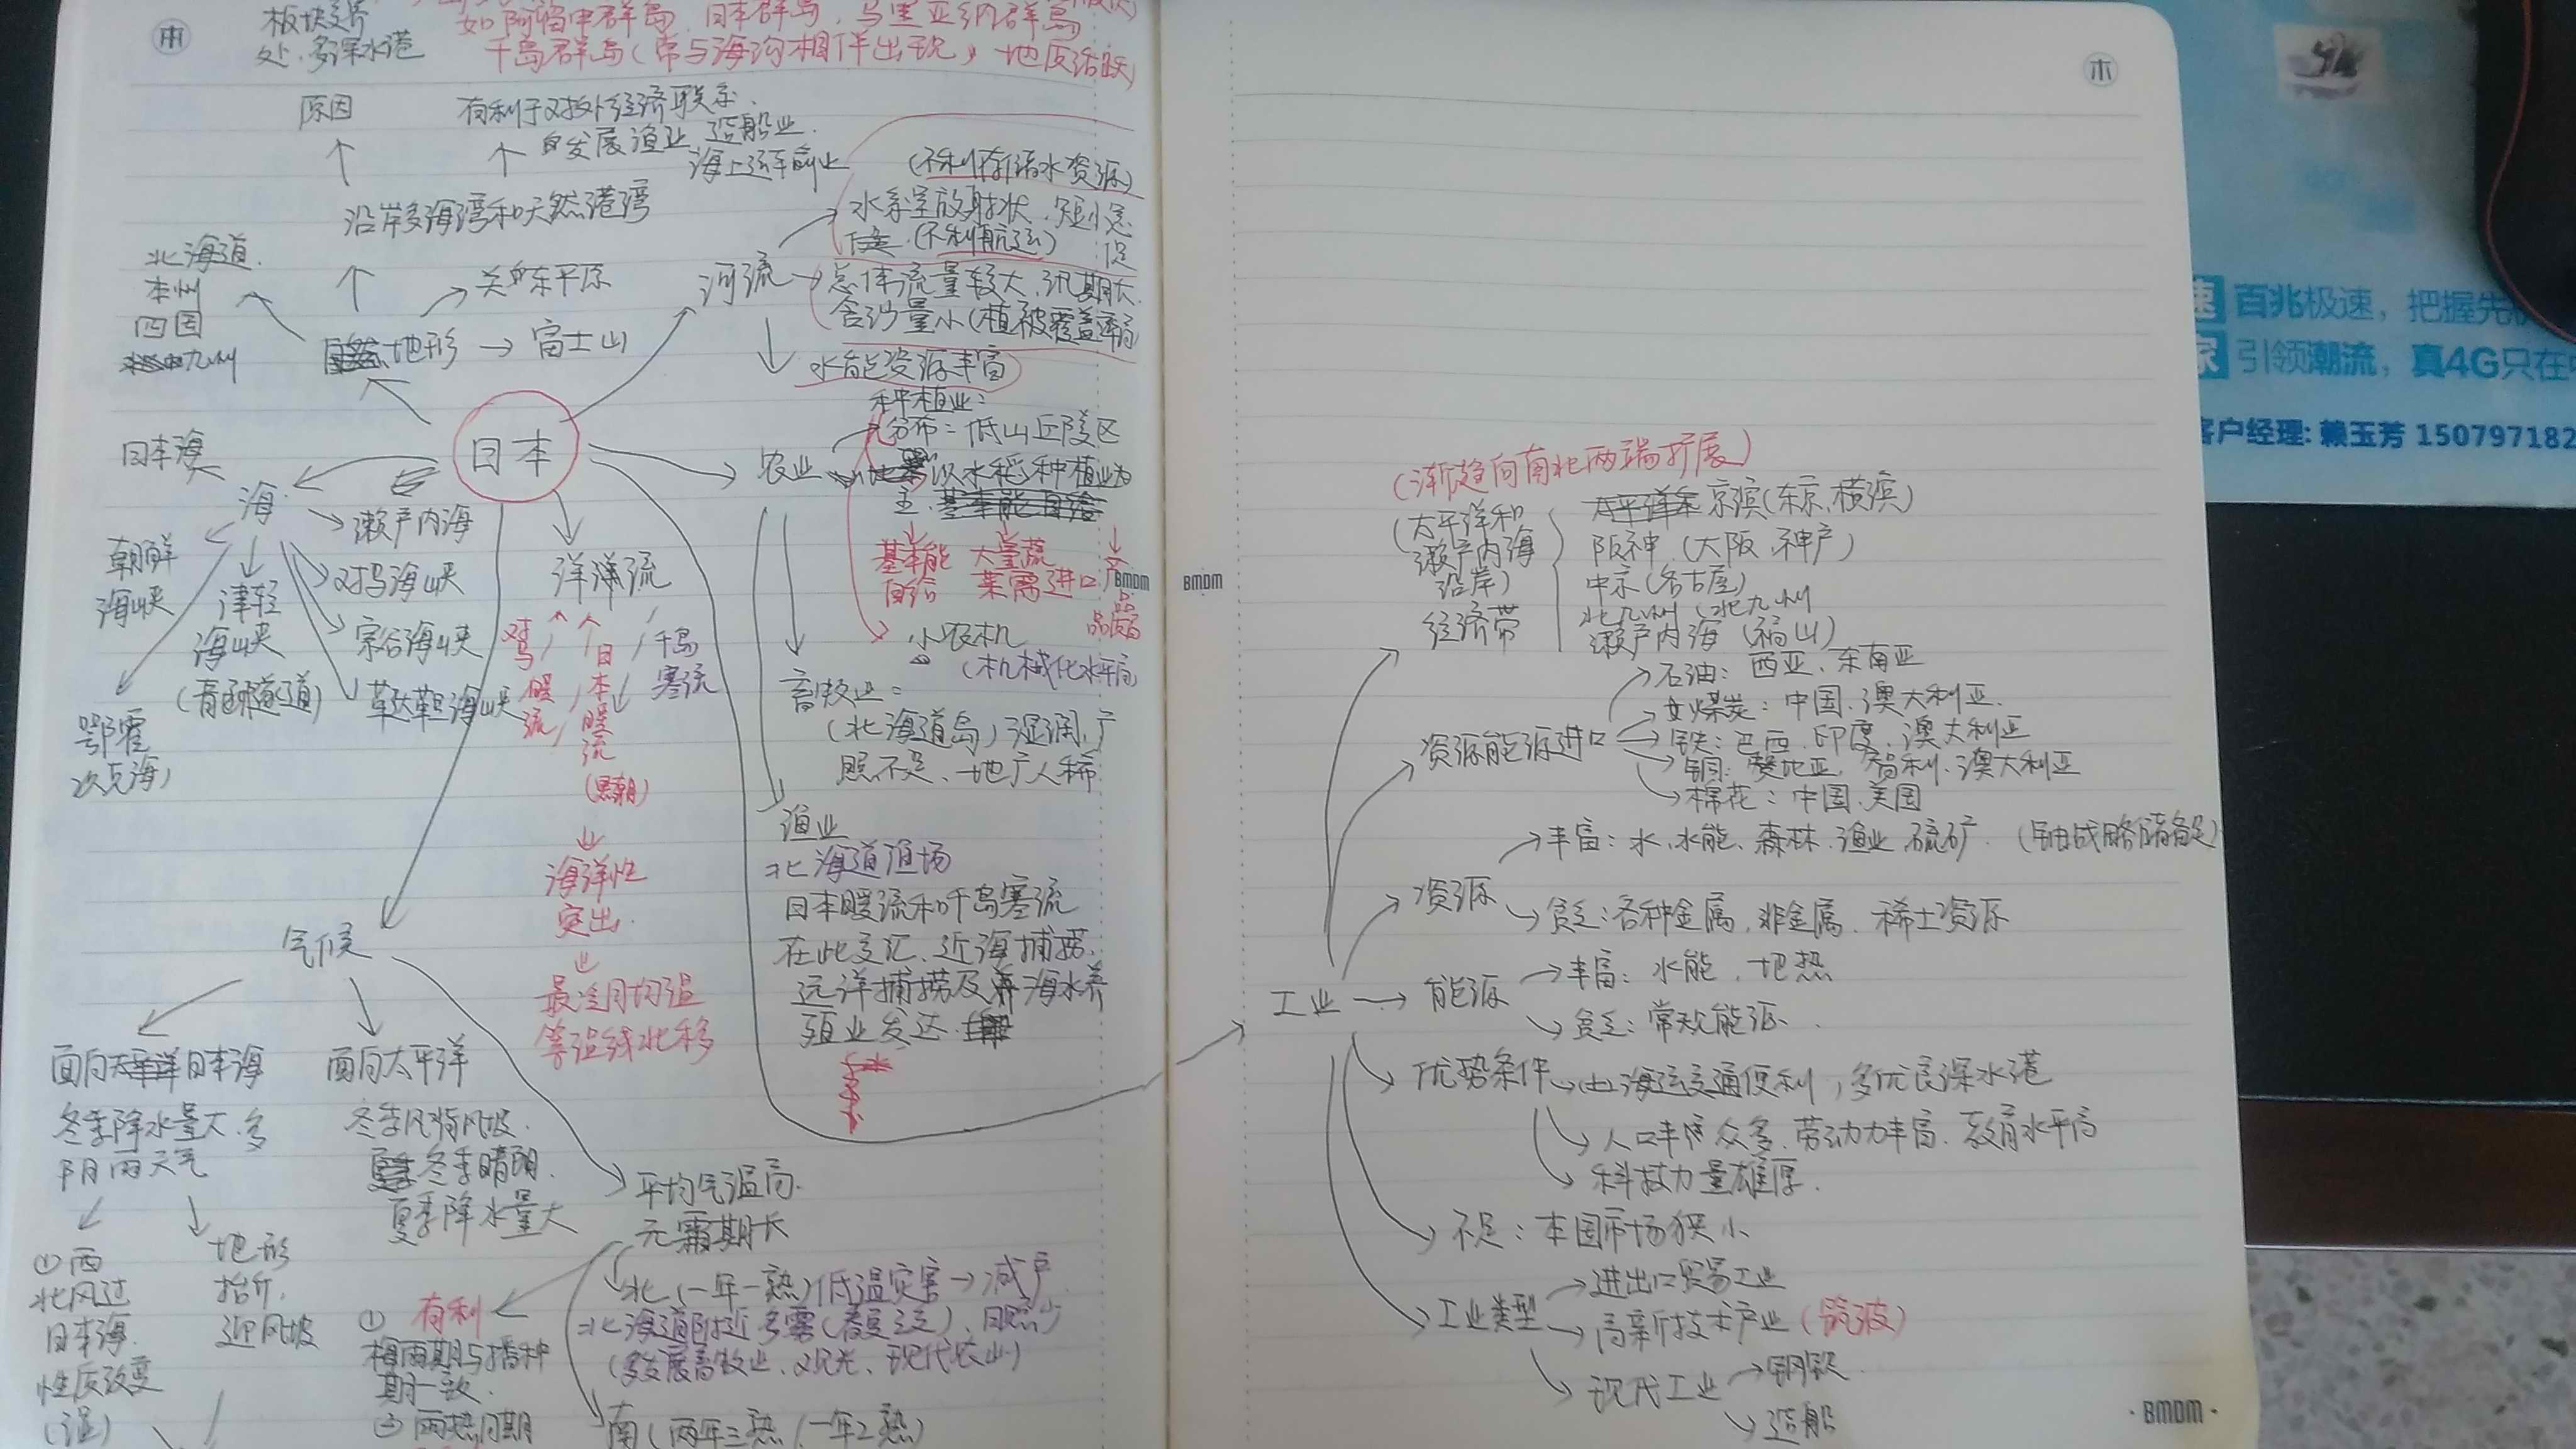 雨
板块交界
处,多深水港
如阿留申群岛,日本群岛,马里亚纳群岛
千岛群岛(常与海沟相伴出现,地质活跃)
原因
有利于对外经济联系.
发展渔业,造船业.
海上运输业
沿岸多海湾和天然港湾
北海道.
本州
四国
九州
地形
关东平原
富士山
河流
(不利存储水资源)
水系呈放射状,短小急促
(不利航运)
总体流量较大,汛期长
含沙量小(植被覆盖率高
水能资源丰富
日本
日本海
海
濑户内海
朝鲜
海峡
津轻
海峡
(青函隧道)
对马海峡
宗谷海峡
鞑靼海峡
鄂霍
次克海
洋流
对马暖流
日本暖流
(黑潮)
千岛
寒流
海洋性
突出.
最冷月均温
等温线北移
农业
种植业:
分布:低山丘陵区
以水稻种植业为
主.基本能自给
基本能
自给
大量蔬
菜需进口
产品
品质高
小农机
(机械化水平高
畜牧业:
(北海道岛)湿润,广
照不足、地广人稀
渔业
北海道渔场
日本暖流和千岛寒流
在此交汇、近海捕捞.
远洋捕捞及海水养
殖业发达.
气候
面向日本海
冬季降水量大.多
阴雨天气
①西
北风过
日本海.
性质改变
(湿)
地形
抬升,
迎风坡
面向太平洋
冬季风背风坡.
冬季晴朗.
夏季降水量大
平均气温高.
无霜期长
有利
①
梅雨期与播种
期一致.
②雨热同期
北(一年一熟)低温灾害→减产
北海道附近多雾(春夏之交)、日照少
(多发展畜牧业、观光、现代农业)
南(两年三熟/一年2熟)
BMDM
木
BMDM
(渐趋向南北两端扩展)
(太平洋和
濑户内海
沿岸)
经济带
京滨(东京,横滨)
阪神.(大阪,神户)
中京(名古屋)
北九州(北九州
濑户内海(福山)
资源能源进口
石油:西亚、东南亚
煤炭:中国、澳大利亚.
铁:巴西、印度、澳大利亚
铜:赞比亚、智利、澳大利亚
棉花:中国、美国
资源
丰富:水、水能、森林、渔业、硫矿.
贫乏:各种金属,非金属、稀土资源
工业
能源
丰富:水能、地热
贫乏:常规能源.
优势条件
海运交通便利,多优良深水港
人口众多、劳动力丰富、教育水平高
科技力量雄厚.
不足:本国市场狭小
工业类型
进出口贸易工业
高新技术产业(筑波)
现代工业
钢铁.
造船
·BMDM·
速 百兆极速,把握先
家 引领潮流,真4G只在
客户经理: 赖玉芳 150797182